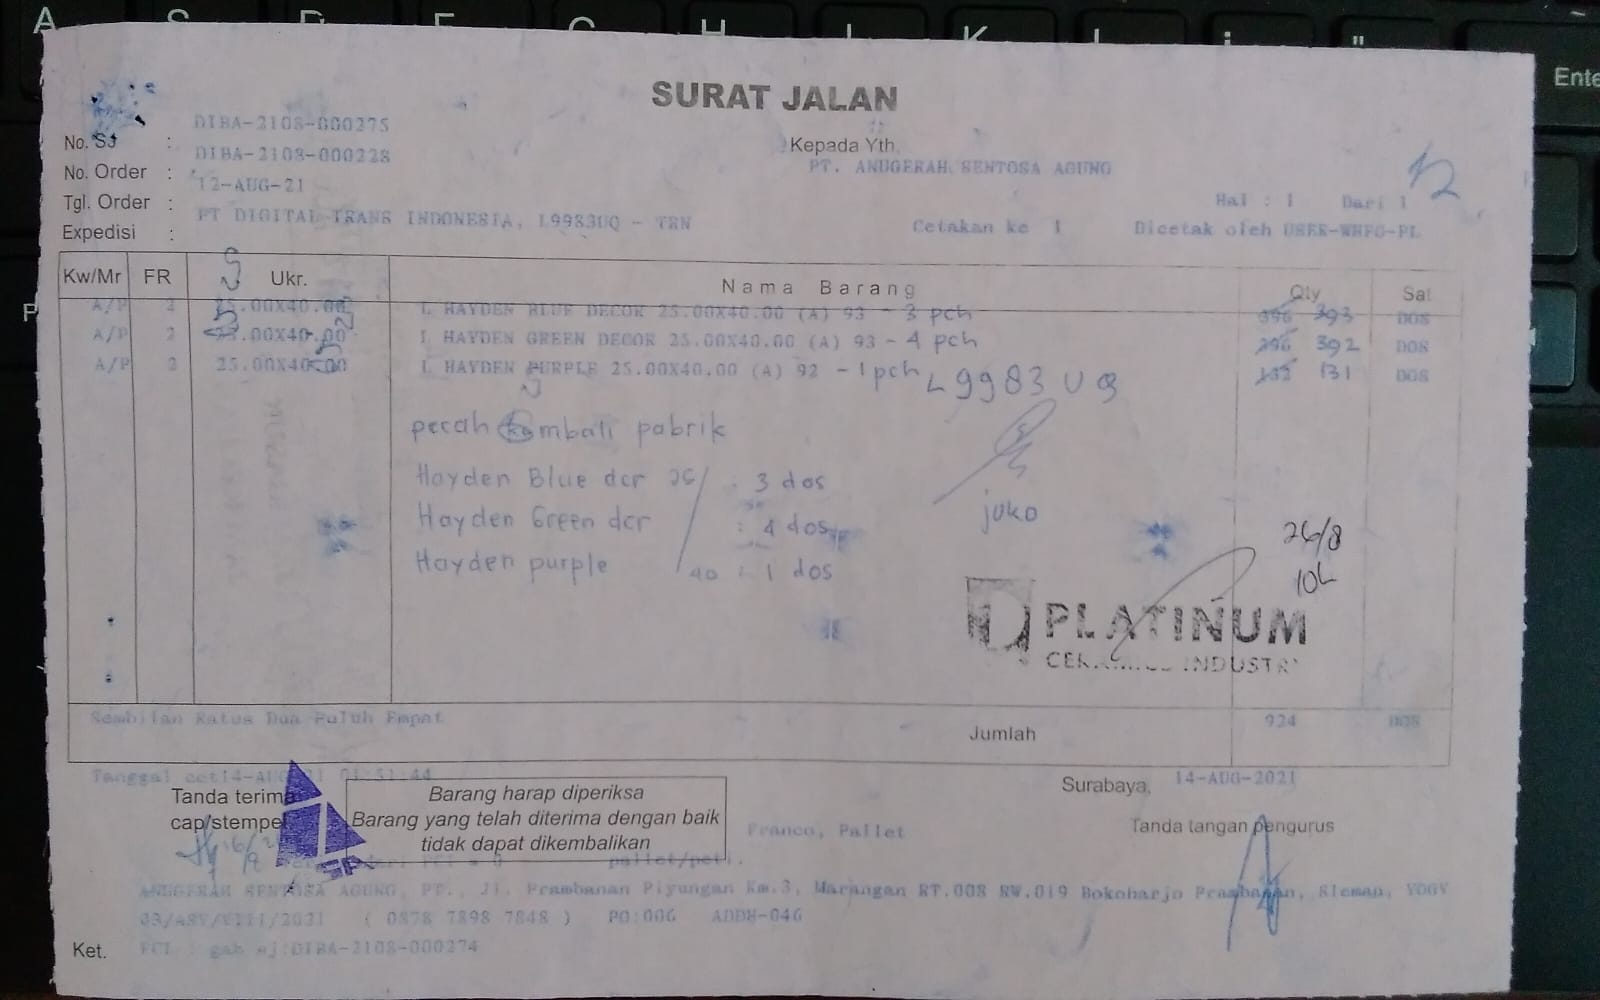 A S D F G H J K L ; "
Enter
SURAT JALAN
No. SJ : DIBA-2108-000275
No. Order : DIBA-2108-000228
Tgl. Order : 12-AUG-21
Expedisi : PT DIGITAL TRANS INDONESIA, L9983UQ - TRN
Kepada Yth.
PT. ANUGERAH SENTOSA AGUNG
Hal : 1 Dari 1
Cetakan ke 1 Dicetak oleh USER-WHFG-PL
Kw/Mr FR Ukr. Nama Barang Qty Sat
A/P 2 25.00X40.00 L HAYDEN BLUE DECOR 25.00X40.00 (A) 93 - 3 pch 396 393 DOS
A/P 2 25.00X40.00 L HAYDEN GREEN DECOR 25.00X40.00 (A) 93 - 4 pch 396 392 DOS
A/P 2 25.00X40.00 L HAYDEN PURPLE 25.00X40.00 (A) 92 - 1 pch 132 131 DOS
L 9983 UQ
pecah kembali pabrik
Hayden Blue dcr : 3 dos
Hayden Green dcr : 4 dos
Hayden purple 40 : 1 dos
juko
26/8
PLATINUM
CERAMICS INDUSTRY
Sembilan Ratus Dua Puluh Empat
Jumlah 924 DOS
Surabaya, 14-AUG-2021
Tanda terima
cap/stempel
16/8
Barang harap diperiksa
Barang yang telah diterima dengan baik
tidak dapat dikembalikan
Franco, Pallet
pallet/peti.
Tanda tangan pengurus
ANUGERAH SENTOSA AGUNG, PT., Jl. Prambanan Piyungan Km.3, Marangan RT.008 RW.019 Bokoharjo Prambanan, Sleman, YOGY
03/ASY/VIII/2021 ( 0878 7898 7848 ) PO:006 ADDH-046
Ket. FCL : gab sj:DIBA-2108-000274